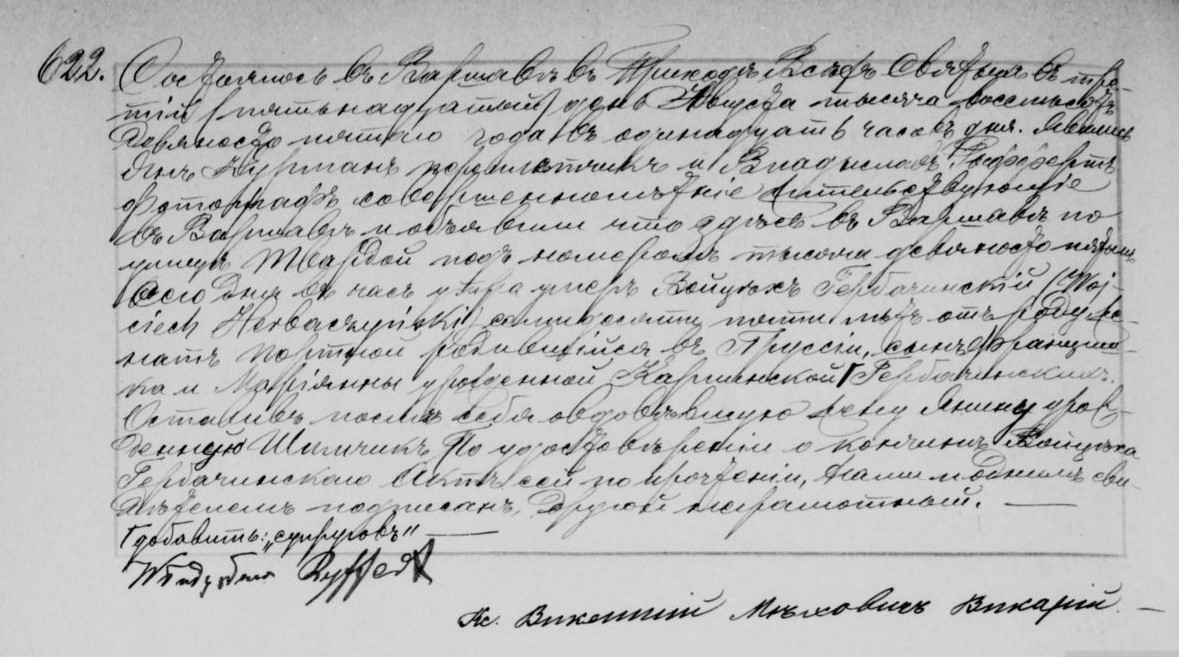 622. Состоялось въ Варшавѣ въ Приходѣ Всѣхъ Святыхъ въ тре-
тій (пятьнадцатый) день Августа тысяча восемьсотъ
девяносто пятаго года въ одинадцать часовъ дня. Явились
Янъ Курманъ переплетчикъ и Владыславъ Руффертъ
фотографъ совершеннолѣтніе жительствующіе
въ Варшавѣ и объявили что здѣсь въ Варшавѣ по
улицѣ Твардой подъ номеромъ тысяча девяносто пятымъ
сего дня въ часъ утра умеръ Войцѣхъ Гербачинскій (Woj-
ciech Herbaczyński) семидесяти пяти лѣтъ отъ роду же-
натъ портной родившійся въ Пруссіи, сынъ Францишка
ка и Маріянны урожденной Каршинской Г Гербачинскихъ.
Оставивъ послѣ себя овдовѣвшую жену Янину урож-
денную Шимчикъ По удостовѣреніи о кончинѣ Войцѣха
Гербачинскаго Актъ сей по прочтеніи, Нами и однимъ сви-
дѣтелемъ подписанъ, Другой неграмотный. —
Г добавить: „супруговъ" —
Władysław Ruffert
Кс. Викентій Мѣховичъ Викарій. —